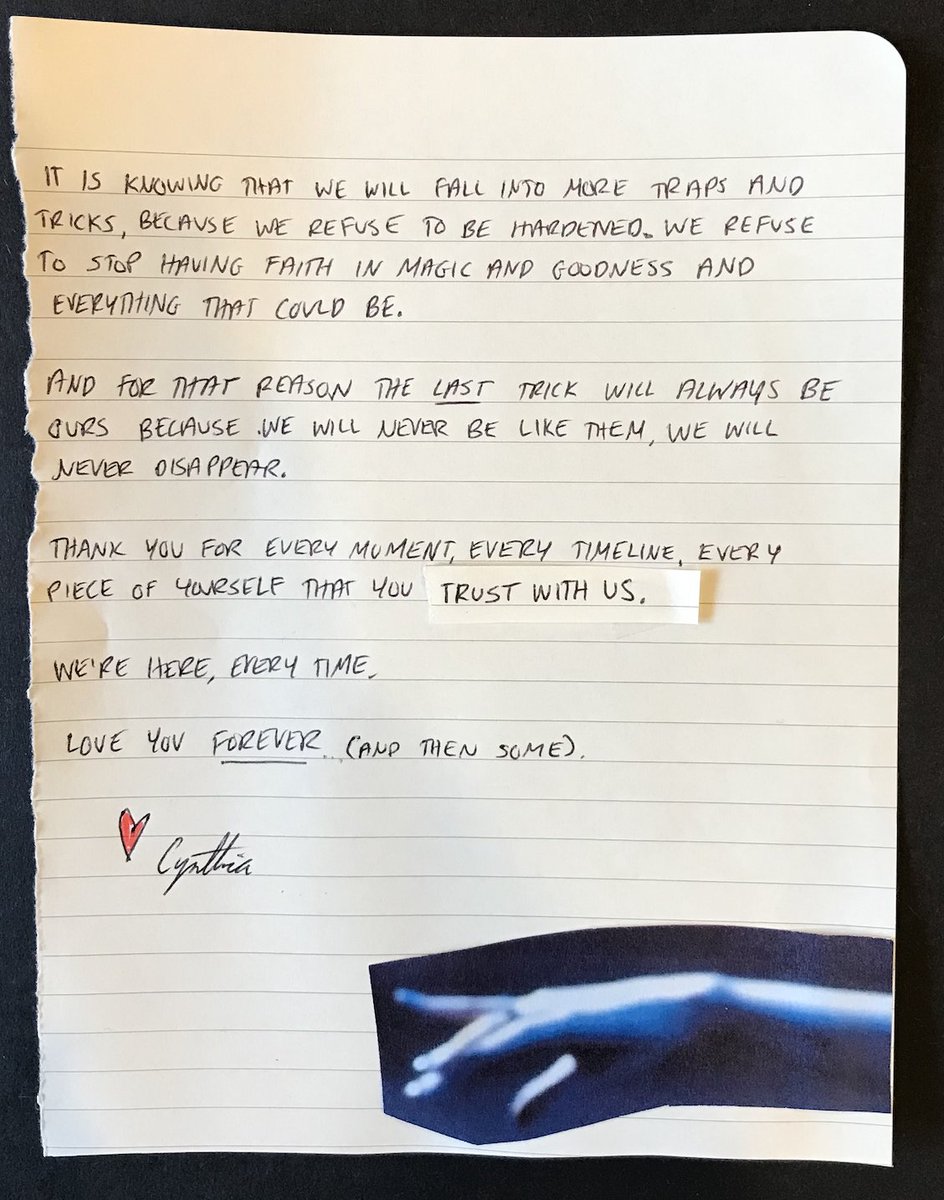 IT IS KNOWING THAT WE WILL FALL INTO MORE TRAPS AND
TRICKS, BECAUSE WE REFUSE TO BE HARDENED. WE REFUSE
TO STOP HAVING FAITH IN MAGIC AND GOODNESS AND
EVERYTHING THAT COULD BE.
AND FOR THAT REASON THE LAST TRICK WILL ALWAYS BE
OURS BECAUSE WE WILL NEVER BE LIKE THEM, WE WILL
NEVER DISAPPEAR.
THANK YOU FOR EVERY MOMENT, EVERY TIMELINE, EVERY
PIECE OF YOURSELF THAT YOU TRUST WITH US.
WE'RE HERE, EVERY TIME.
LOVE YOU FOREVER (AND THEN SOME).
Cynthia